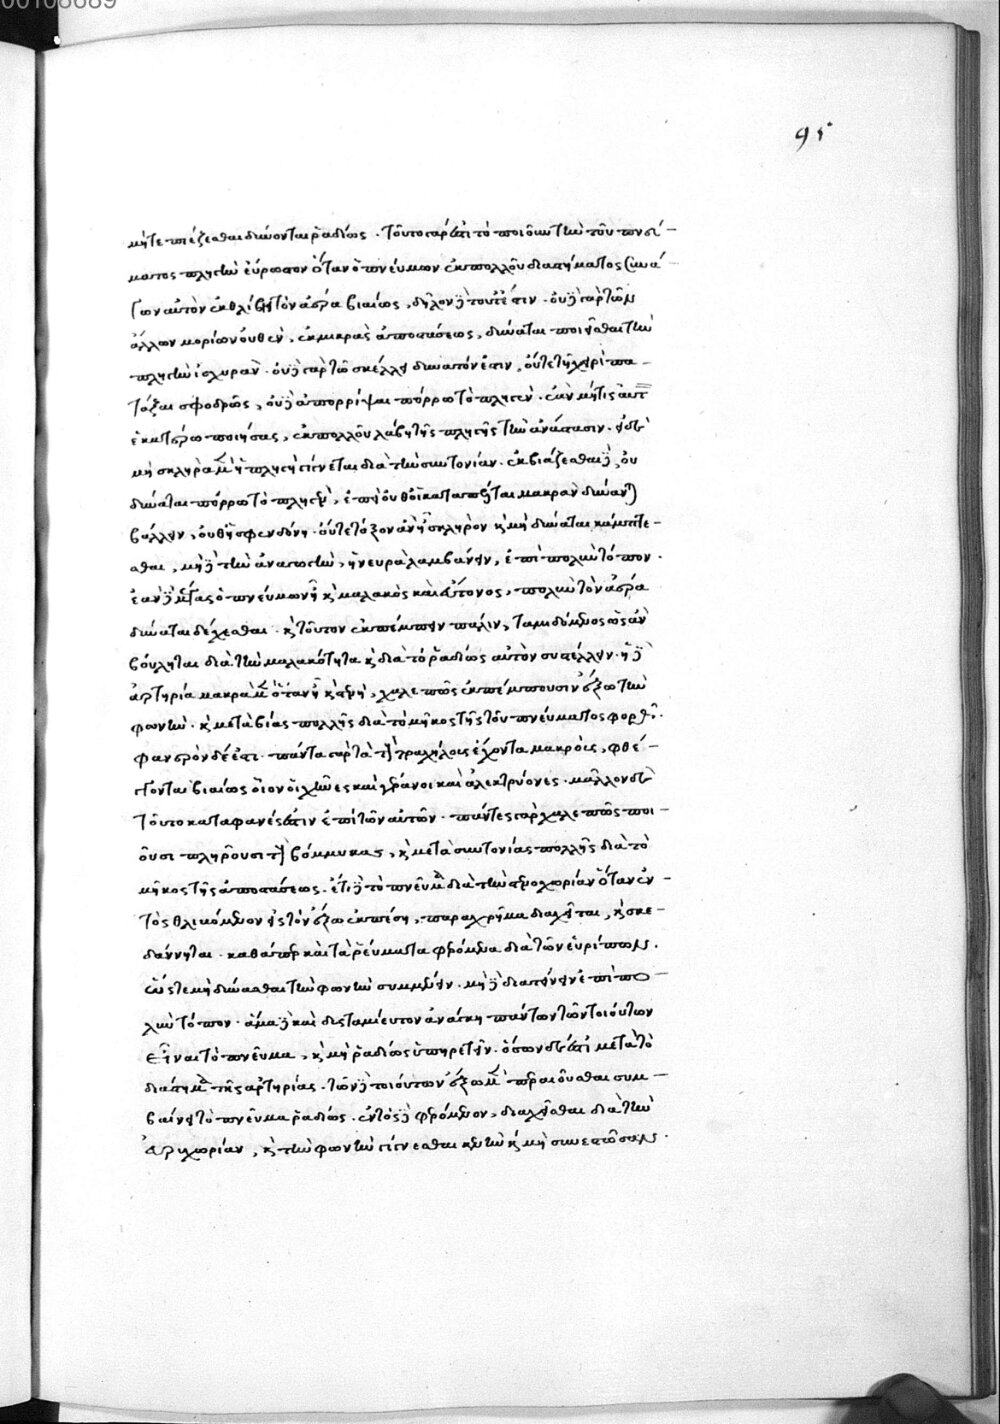 95
μήτε πιέζεσθαι δύνωνται ῥαδίως. τοῦτο γάρ ἐστι τὸ ποιοῦν τὴν τοῦ πνεύ-
ματος πληγὴν εὔρωστον ὅταν ὁ πνεύμων ἐκ πολλοῦ διαστήματος συνά-
γων αὐτὸν ἐκθλίβῃ τὸν ἀέρα βιαίως, δῆλον δὲ τοῦτέστιν. οὐδὲ γὰρ τῶν
ἄλλων μορίων οὐθὲν, ἐκ μικρᾶς ἀποστάσεως, δύναται ποιεῖσθαι τὴν
πληγὴν ἰσχυράν. οὐδὲ γὰρ τῷ σκέλει δυνατόν ἐστιν, οὔτε τῇ χειρὶ πα-
τάξαι σφοδρῶς, οὐδὲ ἀπορρίψαι πόρρω τὸ πληγὲν. ἐὰν μή τις αὐτ
ἑκατέρω ποιήσας, ἐκ πολλοῦ λάβῃ τῆς πληγῆς τὴν ἀνάστασιν. εἰ δὲ
μὴ σκληρὰ μὲν ἡ πληγὴ γίγνεται διὰ τὴν συντονίαν. ἐκβιάζεσθαι δὲ, οὐ
δύναται πόρρω τὸ πληγὲν, ἐπεὶ οὐθ' οἱ καταπέλται μακρὰν δύνανται
βάλλειν, οὔθ' ἡ σφενδόνη. οὔτε τόξον ἂν ἦ σκληρὸν καὶ μὴ δύναται κάμπτε-
σθαι, μὴ δὲ τὴν ἀναγωγὴν, ἡ νευρὰ λαμβάνειν, ἐπὶ πολὺν τόπον.
ἐὰν δὲ μέγας ὁ πνεύμων ἦ καὶ μαλακὸς καὶ εὔτονος, πολὺν τὸν ἀέρα
δύναται δέχεσθαι. καὶ τοῦτον ἐκπέμπειν πάλιν, ταμιευόμενος ὡς ἂν
βούληται διὰ τὴν μαλακότητα καὶ διὰ τὸ ῥαδίως αὐτὸν συστέλλειν. ἡ δὲ
ἀρτηρία μακρὰ μὲν ὅταν ἦ καὶ στενὴ, χαλεπῶς ἐκπέμπουσιν ἔξω τὴν
φωνὴν. καὶ μετὰ βίας πολλῆς διὰ τὸ μῆκος τῆς τοῦ πνεύματος φορᾶς.
φανερὸν δέ ἐστι. πάντα γὰρ τὰ τοὺς τραχήλους ἔχοντα μακροὺς, φθέ-
γγονται βιαίως οἷον οἱ χῆνες καὶ γέρανοι καὶ ἀλεκτρυόνες. μᾶλλον δὲ
τοῦτο καταφανές ἐστιν ἐπὶ τῶν αὐλῶν. πάντες γὰρ χαλεπῶς ποι-
οῦσι πληροῦσι τοὺς βόμμυκας, καὶ μετὰ συντονίας πολλῆς διὰ τὸ
μῆκος τῆς ἀποστάσεως. ἔτι δὲ τὸ πνεῦμα διὰ τὴν στενοχωρίαν ὅταν ἐν-
τὸς θλιβόμενον εἰς τὸν ἔξω ἐκπέσῃ, παραχρῆμα διαχεῖται, καὶ σκε-
δάννυται. καθάπερ καὶ τὰ ῥεύματα φερόμενα διὰ τῶν εὐρίπων.
ὥστε μὴ δύνασθαι τὴν φωνὴν συμμένειν. μὴ δὲ διατείνειν ἐπὶ πο-
λὺν τόπον. ἅμα δὲ καὶ δυσταμίευτον ἀνάγκη πάντων τῶν τοιούτων
εἶναι τὸ πνεῦμα, καὶ μὴ ῥαδίως ὑπηρετεῖν. ὅσων δέ ἐστι μετὰ τὸ
διάστημα τῆς ἀρτηρίας. τῶν δὲ τοιούτων ἔξω μὲν περαιοῦσθαι συμ-
βαίνει τὸ πνεῦμα ῥαδίως. ἐντὸς δὲ φερόμενον, διαχεῖσθαι διὰ τὴν
εὐρυχωρίαν, καὶ τὴν φωνὴν γίγνεσθαι κενὴν καὶ μὴ συνεστῶσαν.